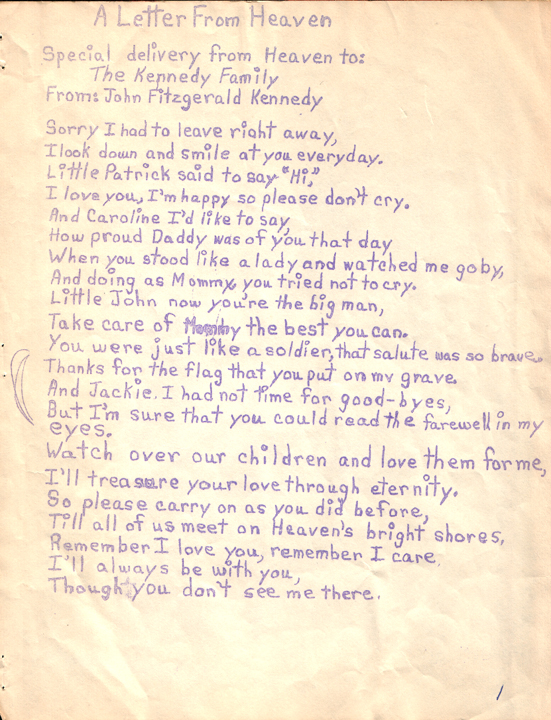 A Letter From Heaven
Special delivery from Heaven to:
The Kennedy Family
From: John Fitzgerald Kennedy
Sorry I had to leave right away,
I look down and smile at you everyday.
Little Patrick said to say "Hi,"
I love you, I'm happy so please don't cry.
And Caroline I'd like to say,
How proud Daddy was of you that day
When you stood like a lady and watched me go by,
And doing as Mommy, you tried not to cry.
Little John now you're the big man,
Take care of Mommy the best you can.
You were just like a soldier, that salute was so brave.
Thanks for the flag that you put on my grave.
And Jackie, I had not time for good-byes,
But I'm sure that you could read the farewell in my
eyes.
Watch over our children and love them for me,
I'll treasure your love through eternity.
So please carry on as you did before,
Till all of us meet on Heaven's bright shores,
Remember I love you, remember I care.
I'll always be with you,
Though you don't see me there.
1